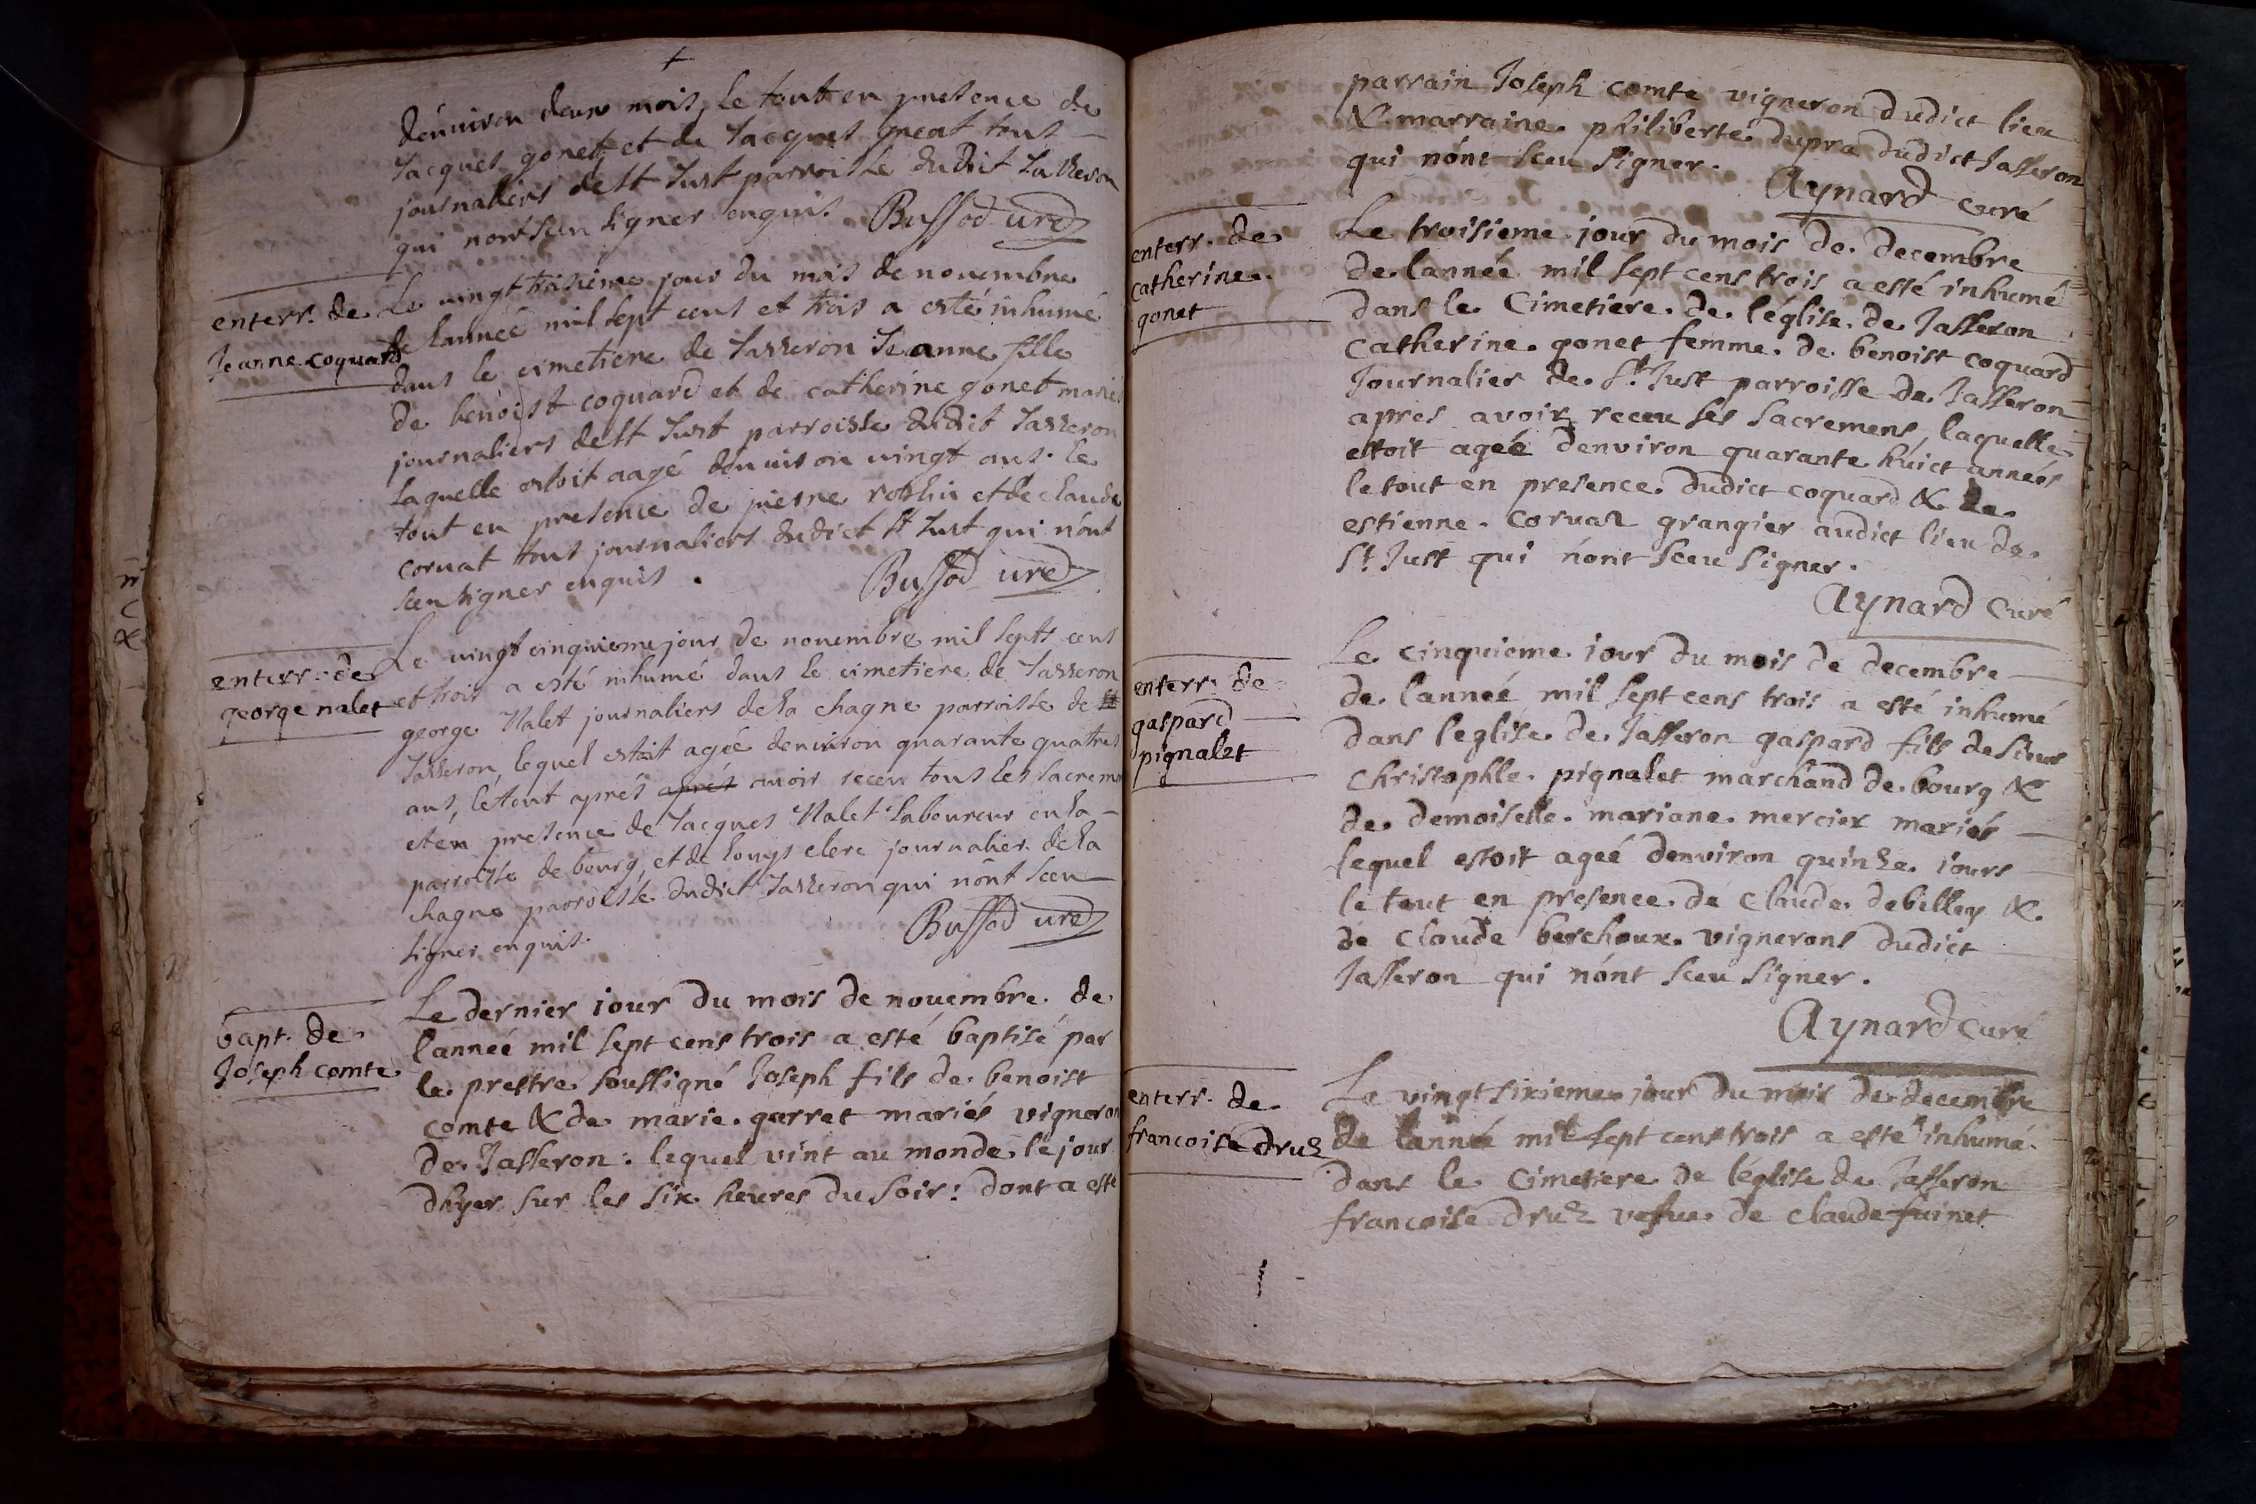 denuiron deux mois, le tout en presence de
Jacques gonet et de Jacques tous
journaliers de St Just parroisse dudit Jasseron
qui nont sceu signer enquis. Bussod
enterr. de
Jeanne coquard
Le vingt troisieme jour du mois de nouembre
de lannée mil sept cens et trois a esté inhumé
dans le cimetiere de Jasseron Jeanne fille
de benoist coquard et de catherine gonet mariés
journaliers de St Just parroisse dudict Jasseron
laquelle estoit aagé denuiron vingt ans. le
tout en presence de pierre et de claude
coruat tous journaliers dudict St Just qui nont
sceu signer enquis.
Bussod
enterr. de
george nalet
Le vingt cinquieme jour de nouembre mil sept cens
et trois a esté inhumé dans le cimetiere de Jasseron
george Nalet journaliers de la chagne parroisse de St
Jasseron, lequel estoit agée denuiron quarante quatres
ans, le tout aprés aprés auoir receu tous les sacremens
et en presence de Jacques Nalet laboureur en la
parroisse de bourg, et de louys clerc journalier de la
chagne parroisse dudict Jasseron qui nont sceu
signer enquis.
Bussod
bapt. de
Joseph comte
Le dernier iour du mois de nouembre de
lannée mil sept cens trois a esté baptisé par
le prestre soussigné Joseph fils de benoist
comte & de marie garret mariés vigneron
de Jasseron: lequel vint au monde le jour
dhyer sur les six heures du soir: dont a esté
parrain Joseph comte vigneron dudict lieu
& marraine philiberte dupra dudict Jasseron
qui nónt sceu signer.
Aynard curé
enterr. de
catherine
gonet
Le troisieme jour du mois de decembre
de lannée mil sept cens trois a esté inhumé
dans le Cimetiere de léglise de Jasseron
catherine gonet femme de benoist coquard
Journalier de St Just parroisse de Jasseron
apres avoir receu ses sacremens, laquelle
estoit agée denviron quarante huict années
le tout en presence dudict coquard & de
estienne coruat grangier audict lieu de
St Just qui nónt sceu signer.
Aynard Curé
enterr. de
gaspard
pignalet
Le cinquieme iour du mois de decembre
de lannée mil sept cens trois a esté inhumé
dans leglise de Jasseron gaspard fils de sieur
christophle pignalet marchand de bourg &
de demoiselle mariane mercier mariés
lequel estoit ageé denviron quinze iours
le tout en presence de claude debilley &
de claude berchoux vignerons dudict
Jasseron qui nónt sceu signer.
Aynard curé
enterr. de
francoise druz
Le vingt sixieme jour du mois de decembre
de lannée mil sept cens trois a esté inhumé
dans le cimetiere de léglise de Jasseron
francoise druz vefue de claude juinet